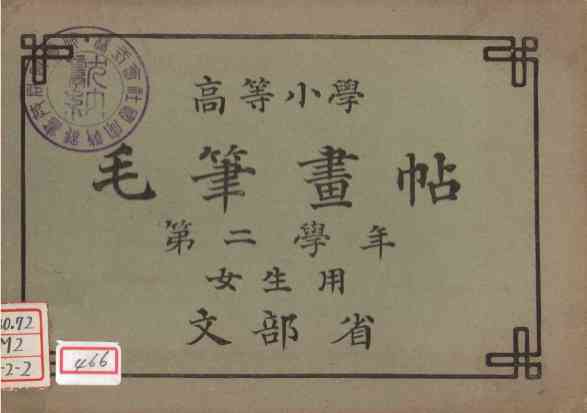 高等小學
毛筆畫帖
第二學年
女生用
文部省
0.72
M2
-2-2
466